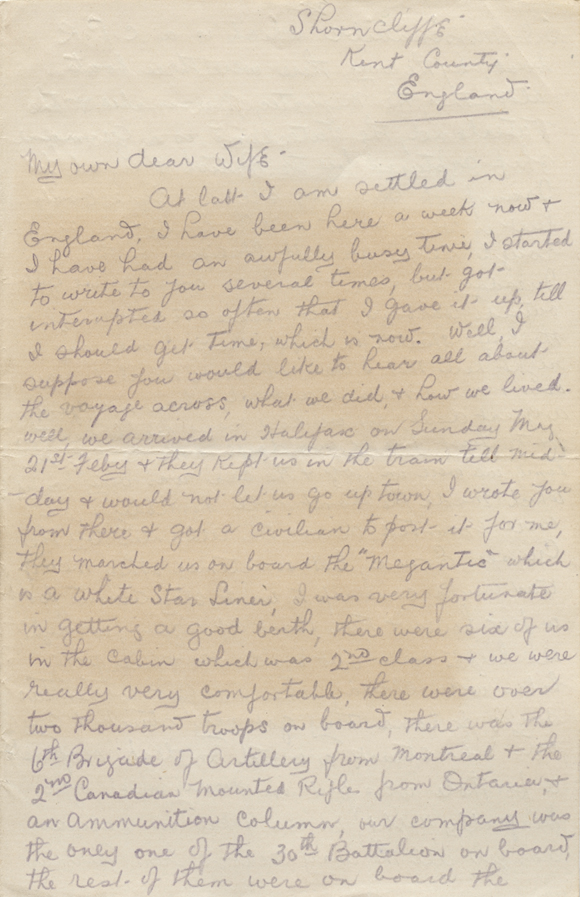 Shorncliffe
Kent County
England
My own dear Wife-
At last I am settled in
England, I have been here a week now &
I have had an awfully busy time, I started
to write to you several times, but got
interupted so often that I gave it up, till
I should get time, which is now. Well, I
suppose you would like to hear all about
the voyage across, what we did, & how we lived.
well, we arrived in Halifax on Sunday Mrg
21st Feby & they kept us in the train till mid-
-day & would not let us go up town, I wrote you
from there & got a civilian to post it for me,
they marched us on board the "Megantic" which
is a White Star Liner, I was very fortunate
in getting a good berth, there were six of us
in the cabin which was 2nd class & we were
really very comfortable, there were over
two thousand troops on board, there was the
6th Brigade of Artillery from Montreal & the
2nd Canadian Mounted Rifles from Ontario, &
an Ammunition Column, our company was
the only one of the 30th Battalion on board,
the rest of them were on board the